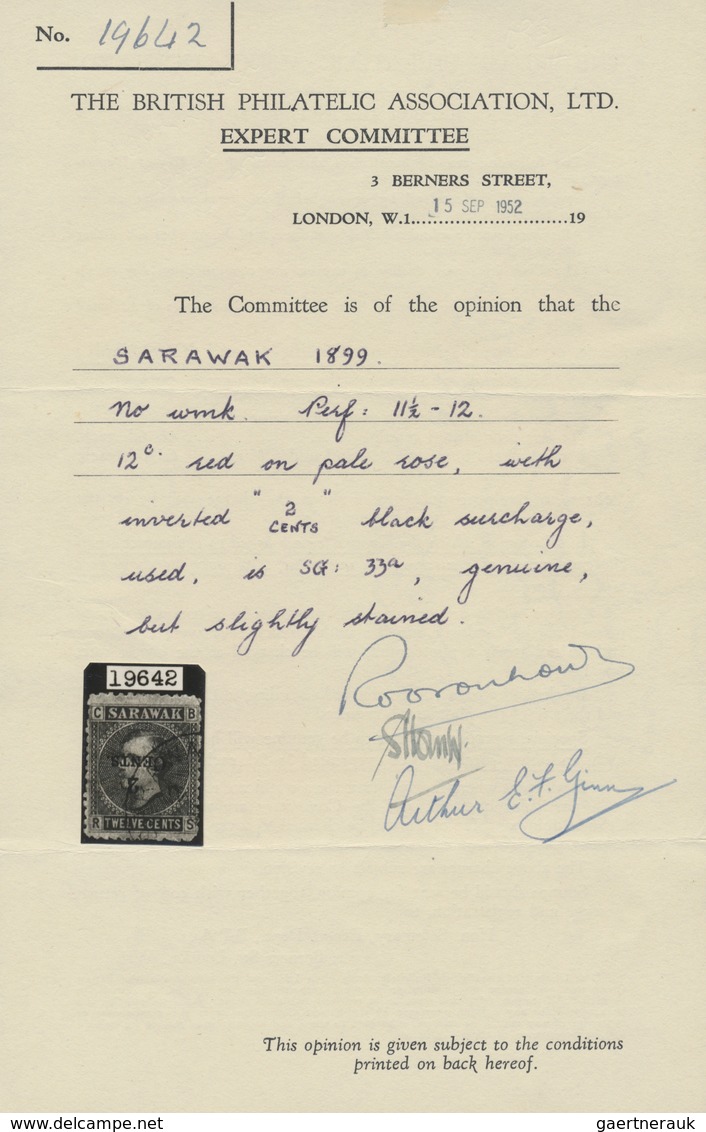 No. 19642
THE BRITISH PHILATELIC ASSOCIATION, LTD.
EXPERT COMMITTEE
3 BERNERS STREET,
LONDON, W.1. 15 SEP 1952 19
The Committee is of the opinion that the
SARAWAK 1899.
No wmk. Perf: 11½ - 12.
12c. red on pale rose, with
inverted "2 CENTS" black surcharge,
used, is SG: 33a, genuine,
but slightly stained.
19642
C SARAWAK B
2 CENTS
R TWELVE CENTS S
Arthur E. F. Ginn
This opinion is given subject to the conditions
printed on back hereof.
www.delcampe.net
gaertnerauk